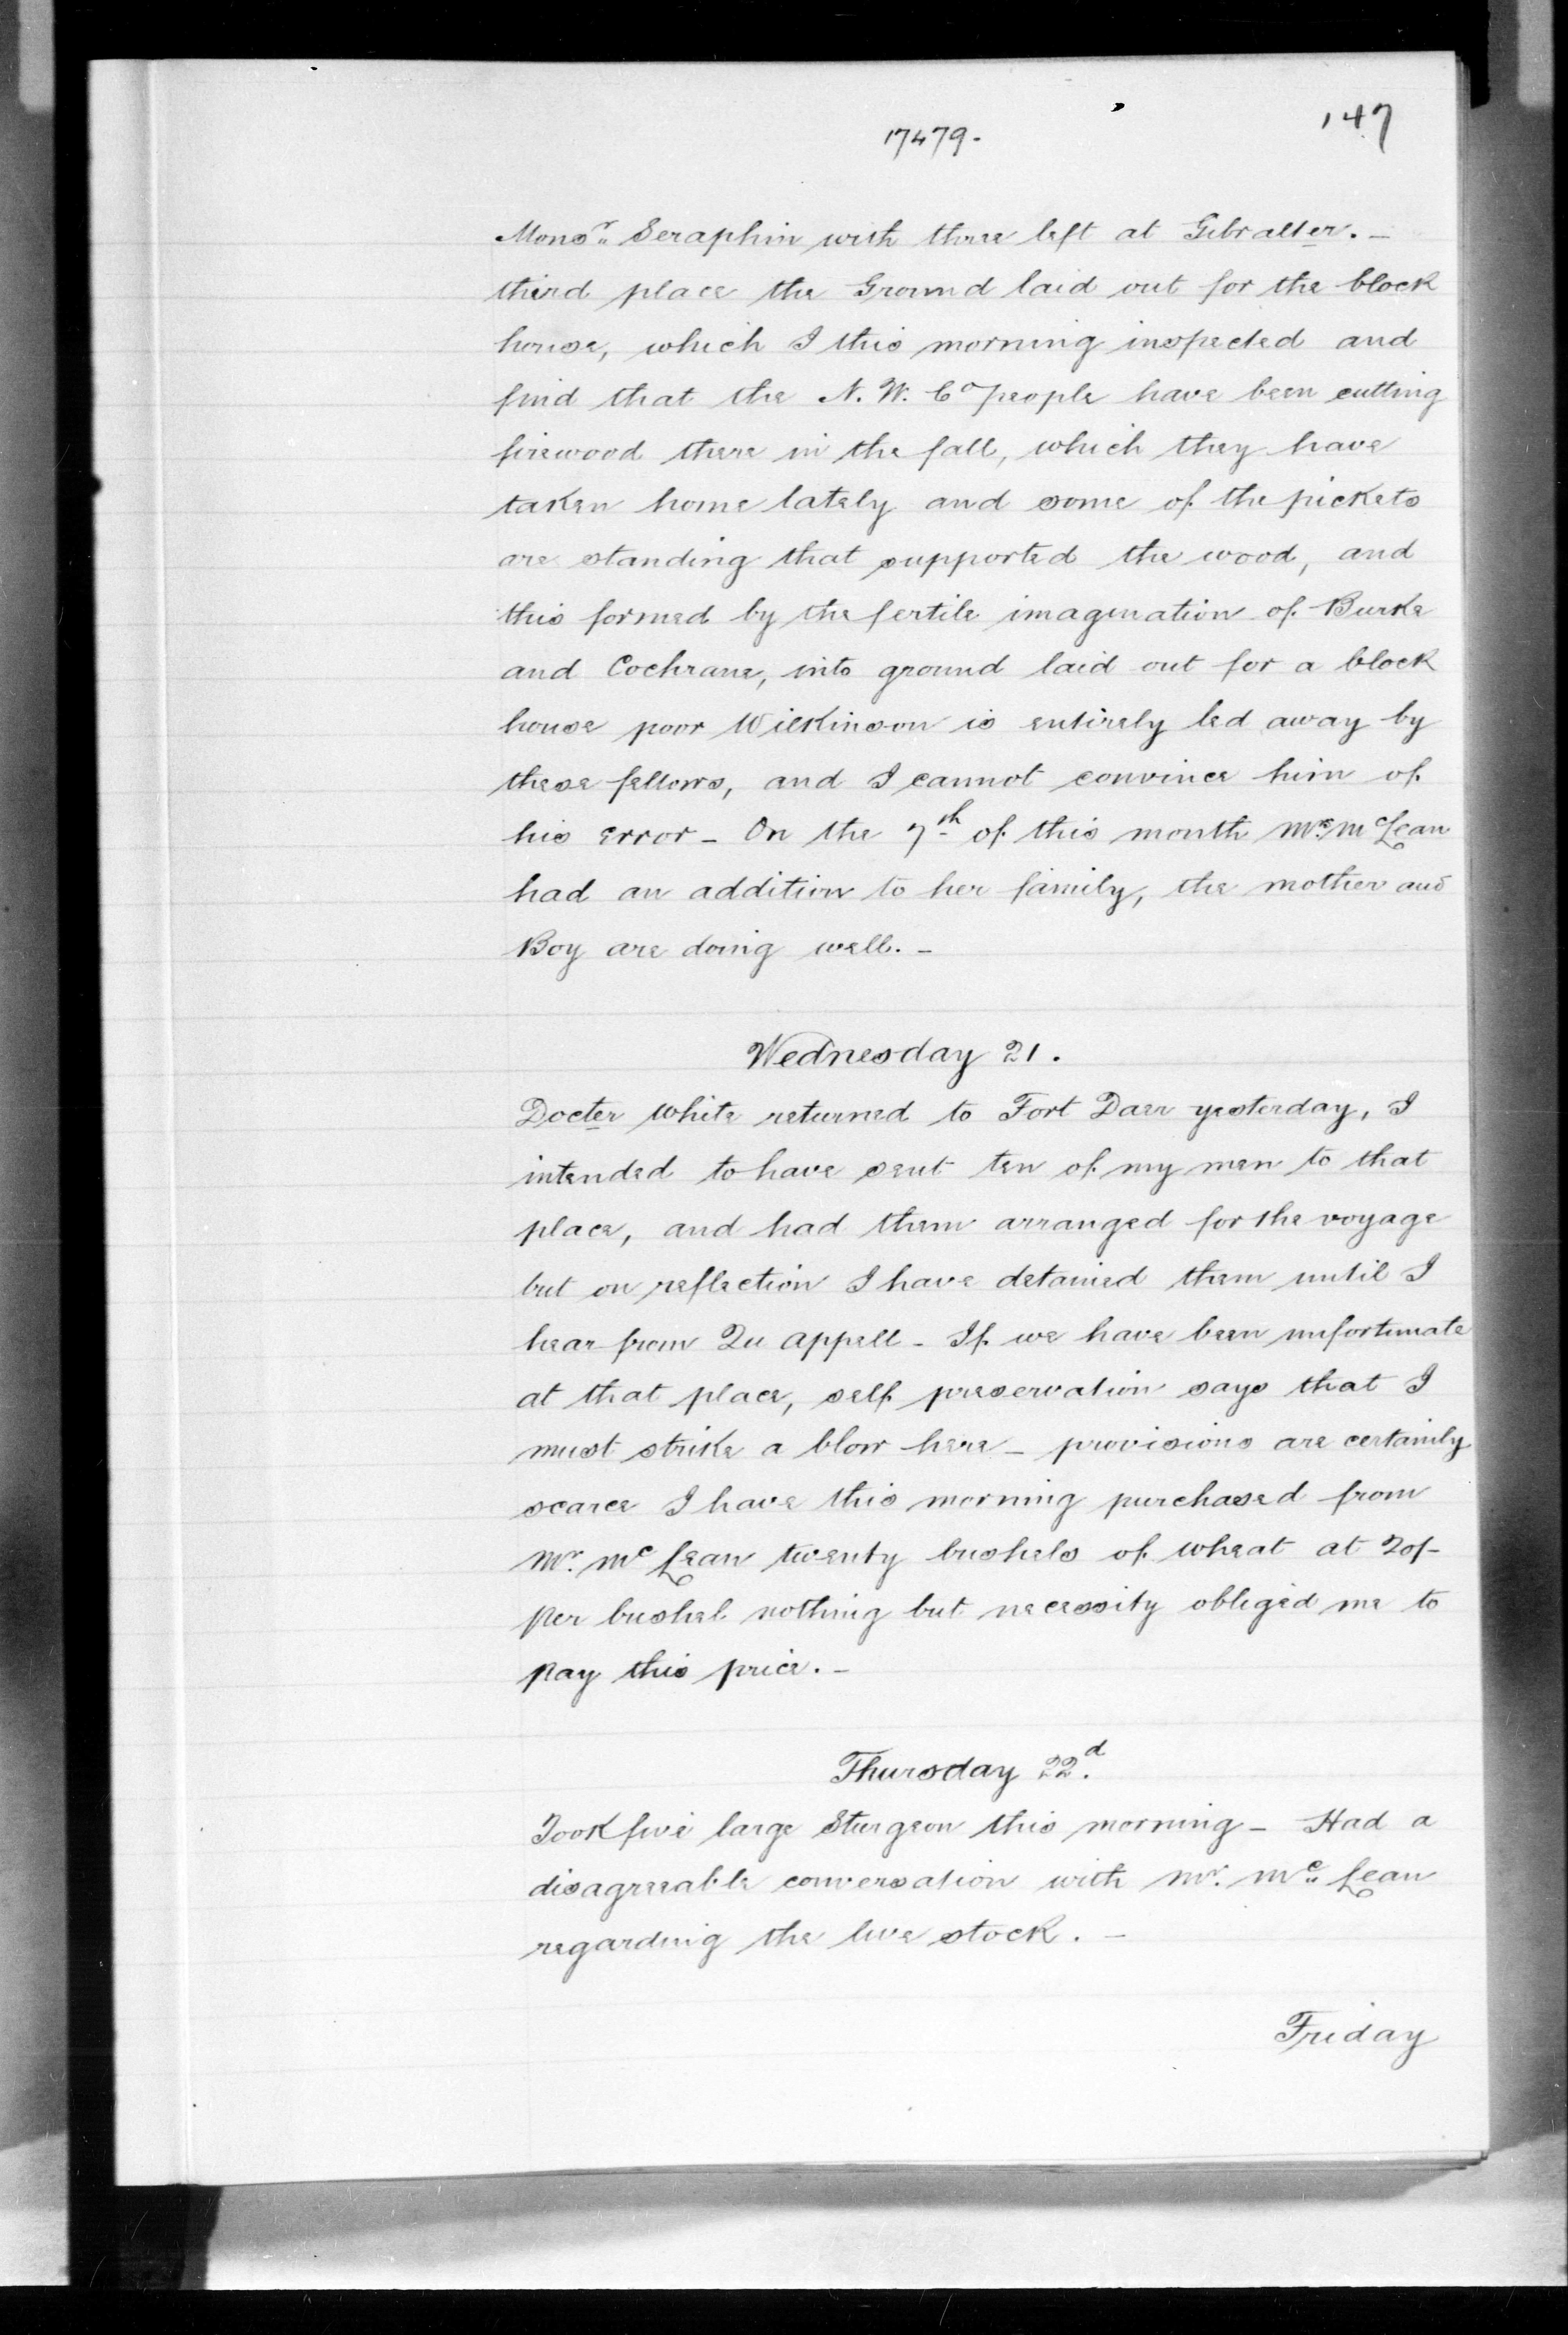 147
17479.
Monsr. Seraphin with three left at Gibralter. -
third place the Ground laid out for the block
house, which I this morning inspected and
find that the N. W. Co people have been cutting
firewood there in the fall, which they have
taken home lately and some of the pickets
are standing that supported the wood, and
this formed by the fertile imagination of Burke
and Cochrane, into ground laid out for a block
house poor Wilkinson is entirely led away by
these fellows, and I cannot convince him of
his error - On the 7th of this month Mrs. McLean
had an addition to her family, the mother and
Boy are doing well. -
Wednesday 21.
Docter White returned to Fort Daer yesterday, I
intended to have sent ten of my men to that
place, and had them arranged for the voyage
but on reflection I have detained them until I
hear from Qu appell - If we have been unfortunate
at that place, self preservation says that I
must strike a blow here - provisions are certainly
scarce I have this morning purchased from
Mr. Mc Lean twenty bushels of wheat at 20/-
per bushel nothing but necessity obliged me to
pay this price. -
Thursday 22d.
Took five large Sturgeon this morning - Had a
disagreeable conversation with Mr. Mc Lean
regarding the live stock. -
Friday